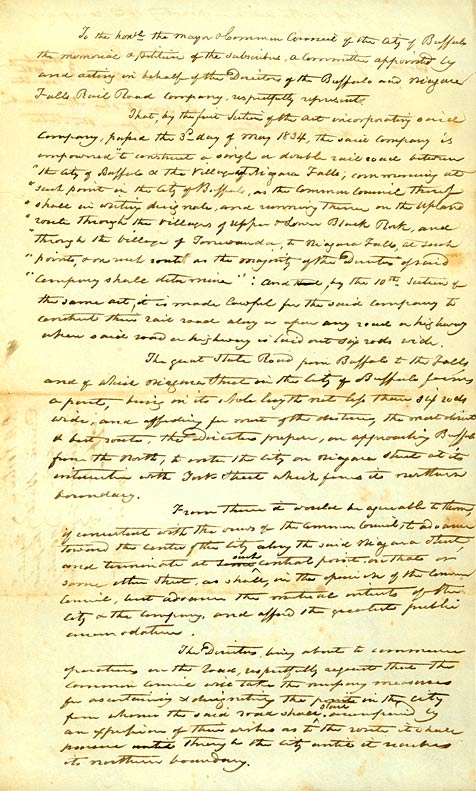 To the honble the Mayor & Common Council of the City of Buffalo
the memorial & petition of the subscribers, a Committee appointed by
and acting in behalf of the Directors of the Buffalo and Niagara
Falls Rail Road Company, respectfully represent
That by the first Section of the Act incorporating said
Company, passed the 3d day of May 1834, the said Company is
empowered "to construct a single or double rail road between
"the City of Buffalo & the Village of Niagara Falls, commencing at
"such point in the City of Buffalo, as the Common Council thereof
"shall in writing designate, and running thence on the Upland
"route through the Villages of Upper & Lower Black Rock, and
"through the Village of Tonewanda, to Niagara Falls, at such
"points, & on such route as the majority of the Directors of said
"Company shall determine": And by the 10th Section of
the same act, it is made lawful for the said Company to
construct their rail road along or upon any road or highway
when said road or highway is laid out six rods wide.
The great State Road from Buffalo to the Falls
and of which Niagara Street in the City of Buffalo forms
a part, being in its whole length not less than six rods
wide, and affording for most of the distance, the most direct
& best route, the Directors propose, on approaching Buffalo
from the North, to enter the City on Niagara Street at its
intersection with York Street which forms its northern
boundary.
From thence it would be agreeable to them,
if consistent with the views of the Common Council, to advance
toward the centre of the City, along the said Niagara Street,
and terminate at such central point, on that or
some other Street, as shall, in the opinion of the Common
Council, best advance the mutual interests of the
City & the Company, and afford the greatest public
accommodation.
The Directors, being about to commence
operations on the Road, respectfully request that the
Common Council will take the necessary measures
for ascertaining & designating the place in the City
from whence the said road shall, accompanied by
an expression of their wishes as to the route it shall
pursue through the City until it reaches
its northern boundary.